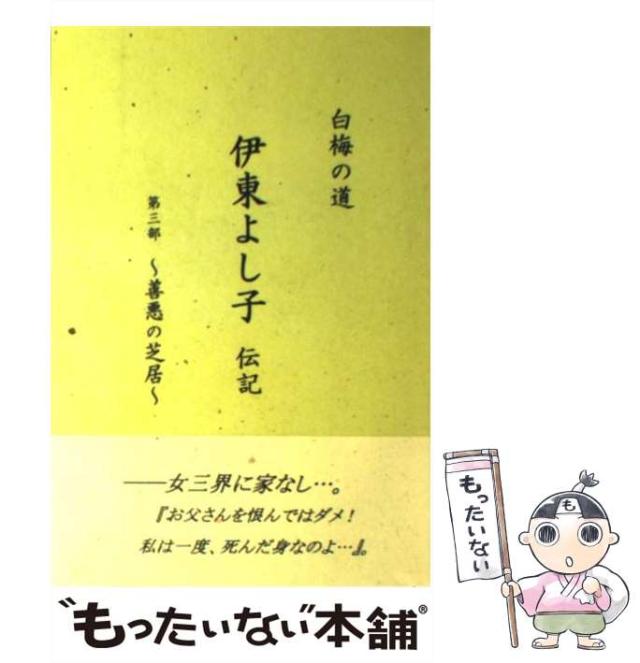 白梅の道
伊東よし子 伝記
第三部 ～善悪の芝居～
――女三界に家なし…。
『お父さんを恨んではダメ！
私は一度、死んだ身なのよ…』。
"もったいない"本舗®
もったいない
も